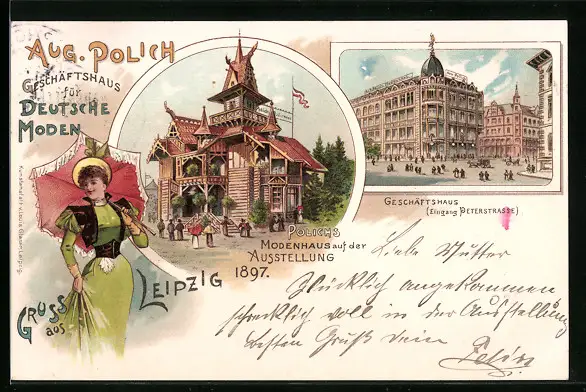 Aug. Polich
Geschäftshaus
für
Deutsche
Moden
Polichs
Modenhaus auf der
Ausstellung
1897.
Geschäftshaus
(Eingang Peterstrasse)
Gruss
aus
Leipzig
Liebe Mutter
Glücklich angekommen
schrecklich voll in der Ausstellung
besten Gruß Dein